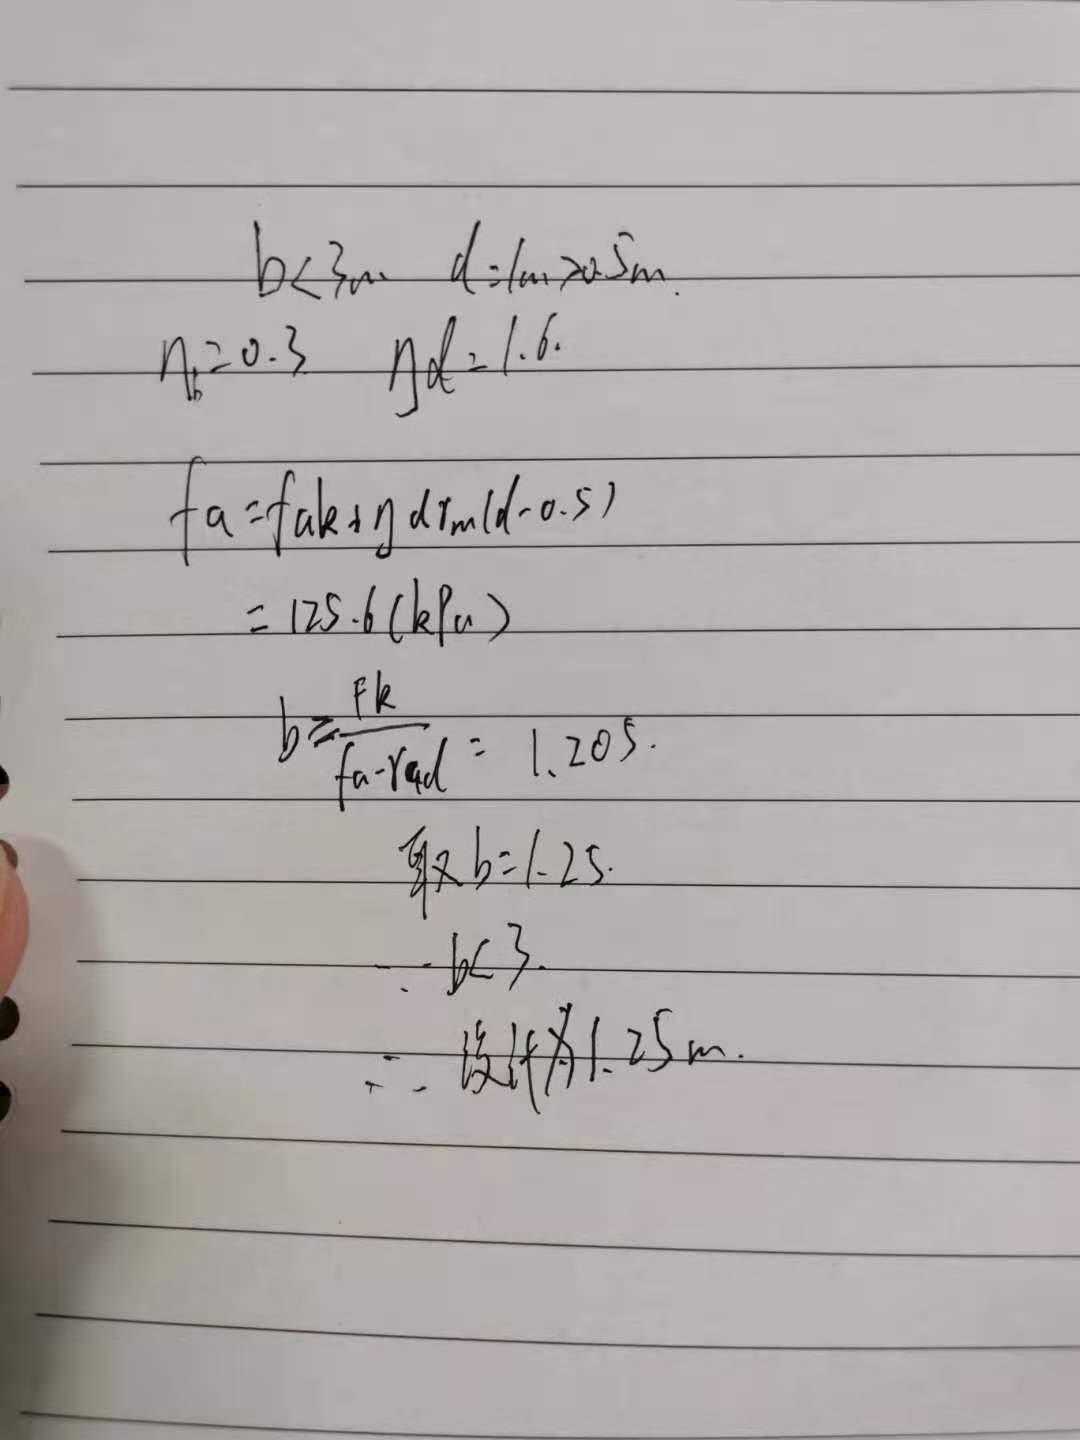 b<3m d=1m>0.5m.
ηb=0.3 ηd=1.6.
fa=fak+ηdγm(d-0.5)
=125.6(kPa)
b≥Fk/(fa-γGd)=1.205.
取b=1.25.
∵b<3.
∴设计为1.25m.